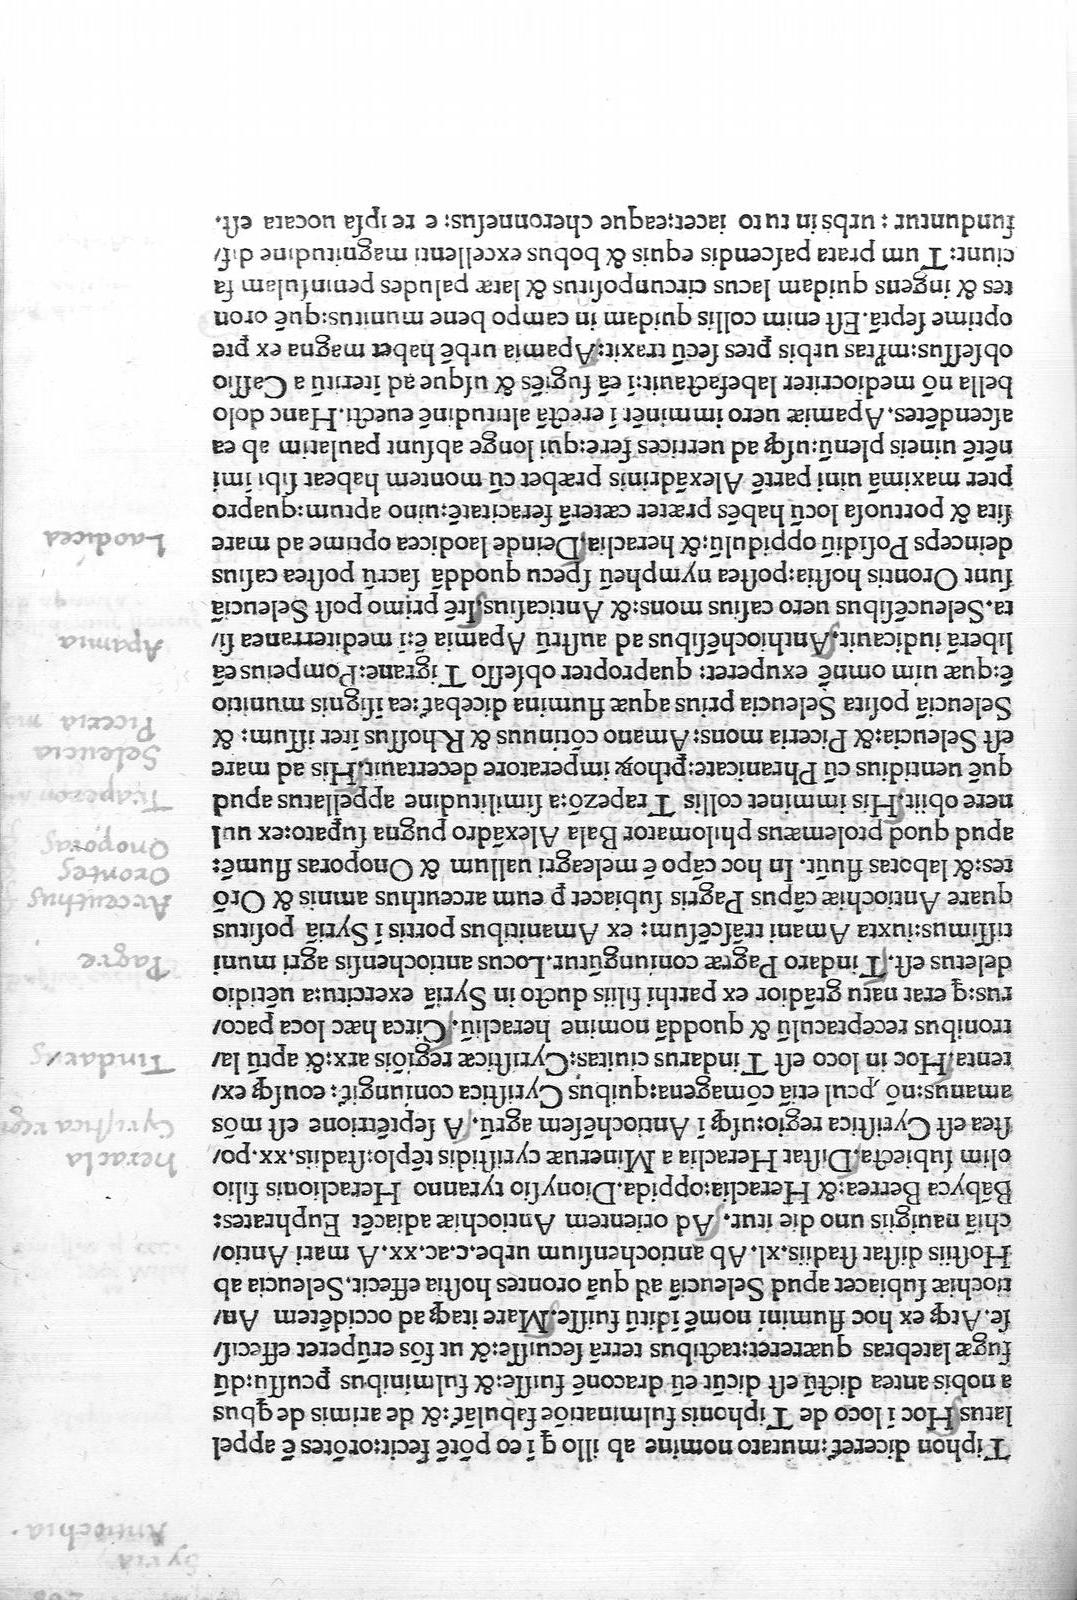 Syria
Antiochia.
Tiphon diceret̄: mutato nomine ab illo q ī eo pōtē fecit: orōtes ē appel
latus. Hoc ī loco de Tiphonis fulminatiōe fabulāt̄: & de arimis de qbus
a nobis antea dictū est dicūt eū draconē fuisse: & fulminibus pcussū: dū
fugæ latebras quæreret: tractibus terrā secuisse: & ut fōs erūperet effecis/
se. Atqɜ ex hoc flumini nomē īditū fuisse. Mare itaqɜ ad occidētem An/
tiochiæ subiacet apud Seleuciā ad quā orontes hostia effecit. Seleucia ab
Hostiis distat stadiis. xl. Ab antiochensium urbe. c. ac. xx. A mari Antio/
chiā nauigiis uno die itur. Ad orientem Antiochiæ adiacēt Euphrates:
Bābyca Berrea: & Heraclia: oppida. Dionysio tyranno Heraclionis filio
olim subiecta. Distat Heraclia a Mineruæ cyristidis tēplo: stadiis. xx. po/
heracla
stea est Cyristica regio: usqɜ ī Antiochēsem agrū. A septētrione est mōs
Cyristica regio
amanus: nō ꝓcul etiā cōmagena: quibus Cyristica coniungit̄: eousqɜ ex/
tenta. Hoc in loco est Tindarus ciuitas: Cyristicæ regiōis arx: & aptū la/
Tindarus
tronibus receptaculū & quoddā nomine heracliū. Circa hæc loca paco/
rus: q erat natu grādior ex parthi filiis ducto in Syriā exercitu: a uētidio
deletus est. Tindaro Pagræ coniungūtur. Locus antiochensis agri muni
Pagre
tissimus: iuxta Amani trāscēsum: ex Amanitibus portis ī Syriā positus
quare Antiochiæ cāpus Pagris subiacet p eum arceuthus amnis & Orō
Arceuthus
Orontes
tes: & labotas fluūt. In hoc cāpo ē meleagri uallum & Onoporas flumē:
Onoporas
apud quod ptolemæus philomator Bala Alexādro pugna supato: ex uul
nere obiit. His imminet collis Trapezō: a similitudine appellatus apud
Trapezon
quē uentidius cū Phranicate: pthoꝝ imperatore decertauit. His ad mare
Seleucia
est Seleucia: & Piceria mons: Amano cōtinuus & Rhossus iter issum: &
Piceria
Seleuciā posita Seleucia prius aquæ flumina dicebat̄: ea īsignis munitio
ē: quæ uim omnē exuperet: quapropter obsesso Tigrane: Pompeius eā
liberā iudicauit. Anthiochēsibus ad austrū Apamia ē: ī mediterranea si/
Apamia
ta. Seleucēsibus uero casius mons: & Anticasius. Itē primo post Seleuciā
sunt Orontis hostia: postea nympheū specu quoddā sacrū postea casius
deinceps Posidiū oppidulū: & heraclia. Deinde laodicea optime ad mare
Laodicea
sita & portuosa locū habēs præter cæterā feracitatē: uino aptum: quapro
pter maximā uini partē Alexādrinis præbet cū montem habeat sibi imi
nētē uineis plenū: usqɜ ad uertices fere: qui longe absunt paulatim ab ea
ascendētes. Apamiæ uero imminēt ī erectā altitudinē euecti. Hanc dolo
bella nō mediocriter labefactauit: ī eā fugiēs & usque ad iteritū a Cassio
obsessus: mrtas urbis ptes secū traxit: Apamia urbē habet magna ex pte
optime septā. Est enim collis quidam in campo bene munitus: quē oron
tes & ingens quidam lacus circunpositus & latæ paludes peninsulam fa
ciunt: Tum prata pascendis equis & bobus excellenti magnitudine dif/
funduntur: urbs in tuto iacet: eaque cherronnesus: e re ipsa uocata est.